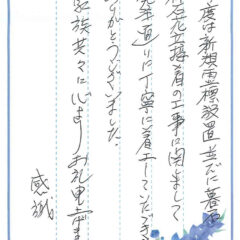 度は新規霊標設置並びに墓石
接着の工事に関しまして
通りに丁寧に着工していただき
がとうございました。
家族共々に心よりお礼申し上げま
感謝